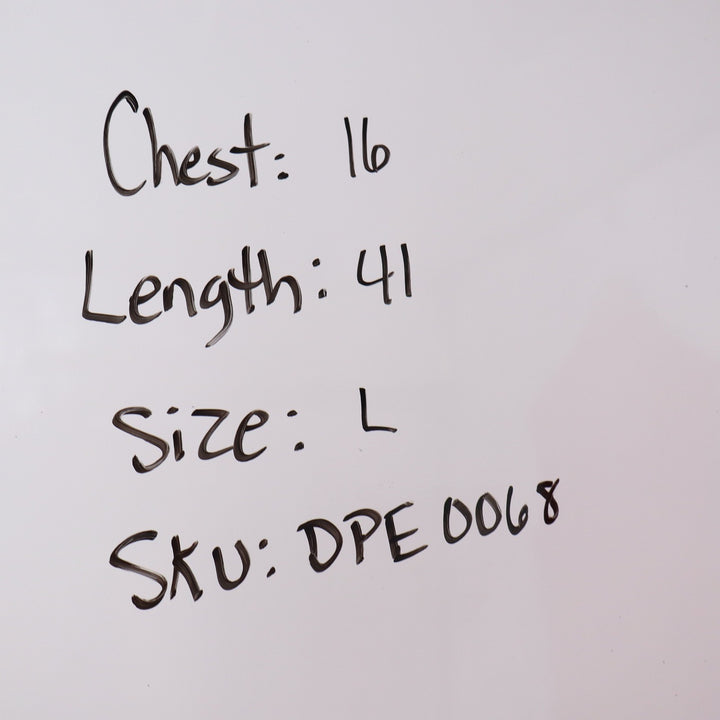 Chest: 16
Length: 41
Size: L
SKU: DPE 0068